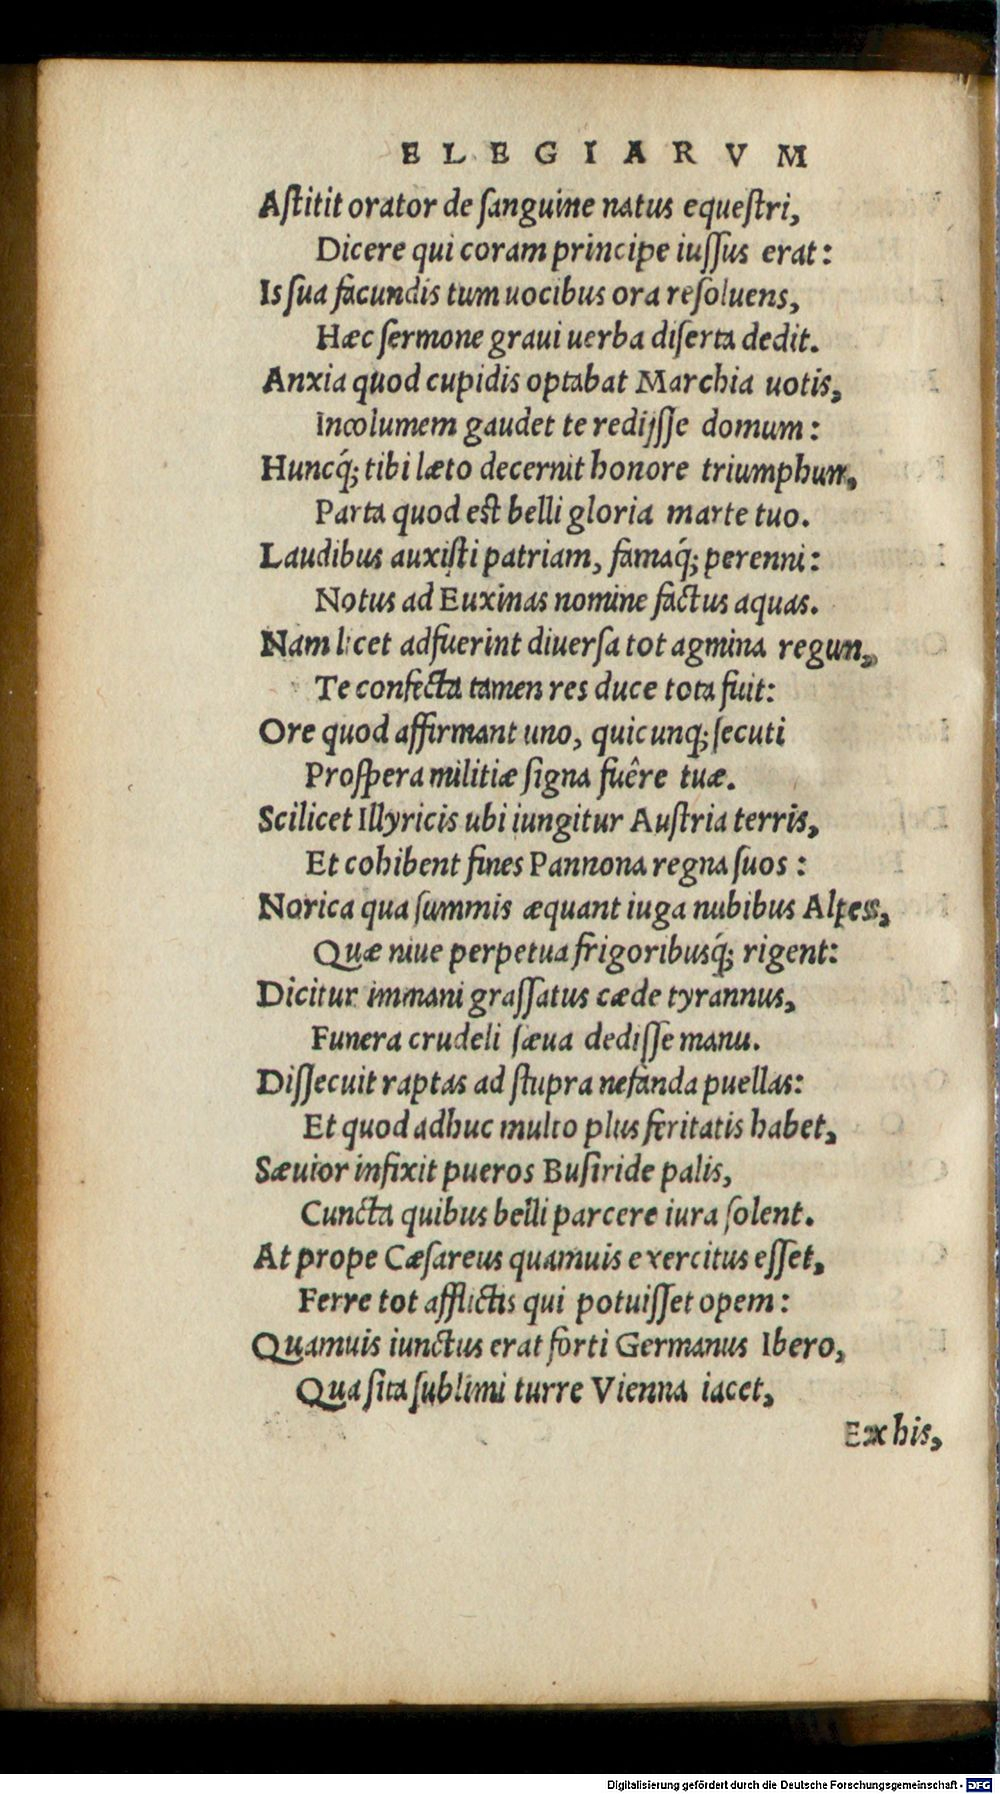 ELEGIARVM
Aſtitit orator de ſanguine natus equeſtri,
Dicere qui coram principe iuſſus erat:
Is ſua facundis tum uocibus ora reſoluens,
Hæc ſermone graui uerba diſerta dedit.
Anxia quod cupidis optabat Marchia uotis,
Incolumem gaudet te redijſſe domum:
Huncq́; tibi læto decernit honore triumphum,
Parta quod est belli gloria marte tuo.
Laudibus auxiſti patriam, famaq́; perenni:
Notus ad Euxinas nomine factus aquas.
Nam licet adfuerint diuerſa tot agmina regum,
Te confecta tamen res duce tota fuit:
Ore quod affirmant uno, quicunq; ſecuti
Proſpera militiæ ſigna fuêre tuæ.
Scilicet Illyricis ubi iungitur Auſtria terris,
Et cohibent fines Pannona regna ſuos:
Norica qua ſummis æquant iuga nubibus Alpes,
Quæ niue perpetua frigoribusq́; rigent:
Dicitur immani graſſatus cæde tyrannus,
Funera crudeli ſæua dediſſe manu.
Diſſecuit raptas ad ſtupra nefanda puellas:
Et quod adhuc multo plus feritatis habet,
Sæuior infixit pueros Buſiride palis,
Cuncta quibus belli parcere iura ſolent.
At prope Cæſareus quamuis exercitus eſſet,
Ferre tot afflictis qui potuiſſet opem:
Quamuis iunctus erat forti Germanus Ibero,
Qua ſita ſublimi turre Vienna iacet,
Ex his,
Digitalisierung gefördert durch die Deutsche Forschungsgemeinschaft - DFG